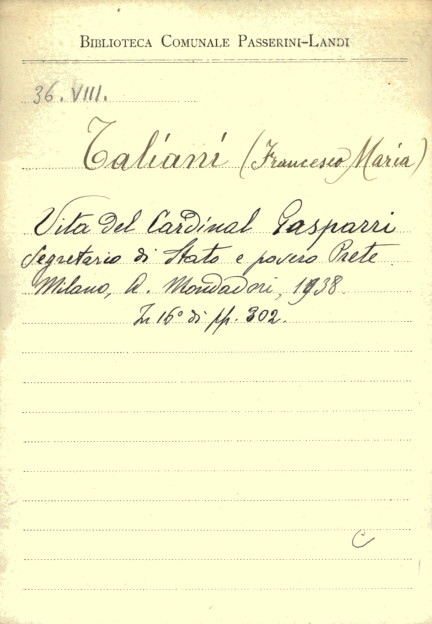 BIBLIOTECA COMUNALE PASSERINI-LANDI
36. VIII.
Taliani (Francesco Maria)
Vita del Cardinal Gasparri
Segretario di Stato e povero Prete
Milano, A. Mondadori, 1938.
In 16° di pp. 302.
C